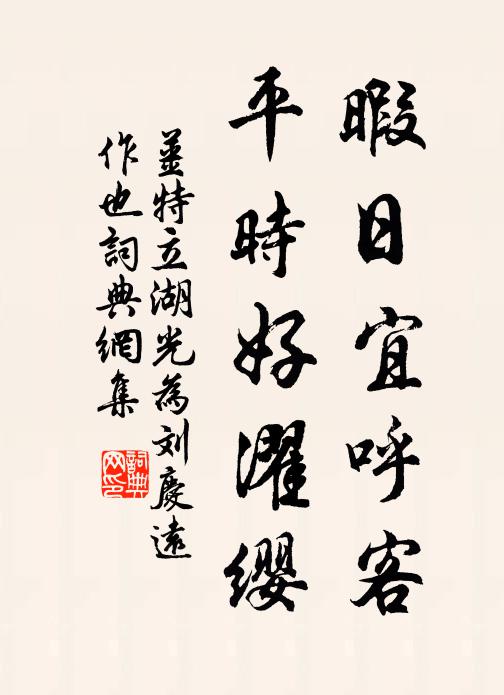 暇日宜呼客
平時好濯纓
姜特立湖光為刘慶遠
作也詞典網集
詞典网印